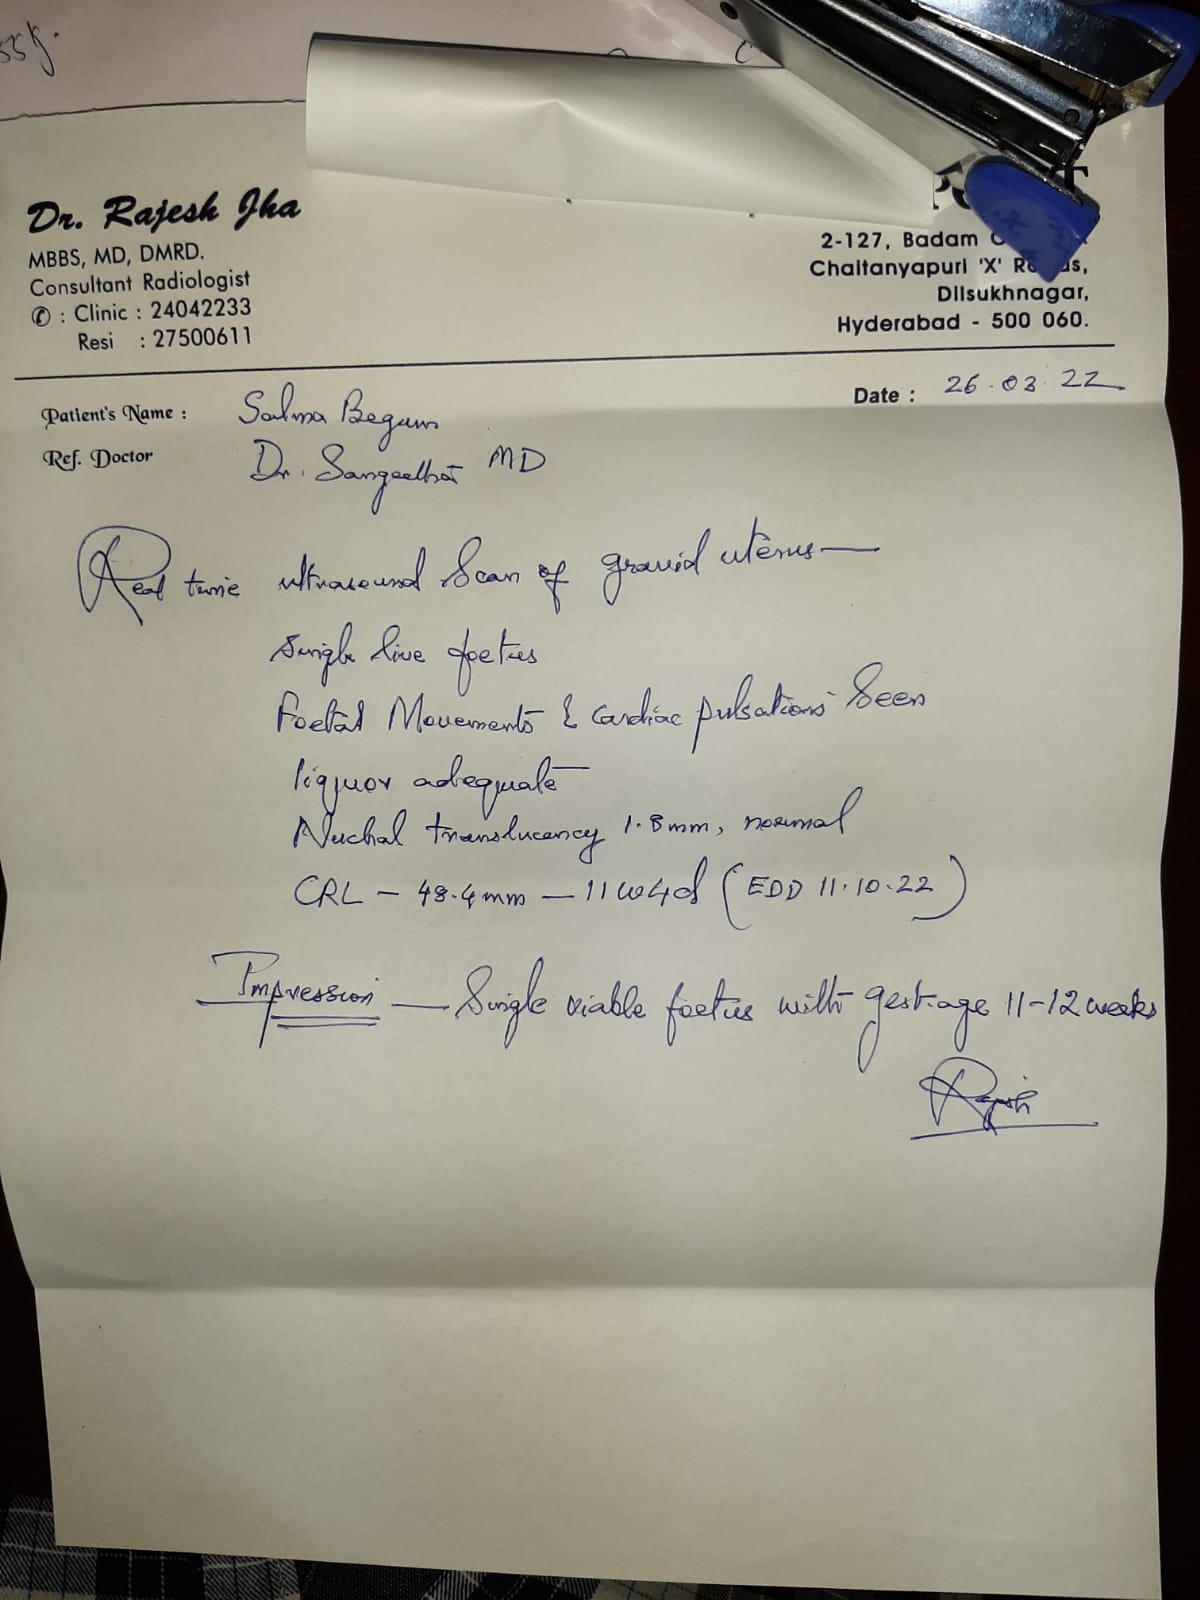 55 kg.
Dr. Rajesh Jha
MBBS, MD, DMRD.
Consultant Radiologist
✆ : Clinic : 24042233
Resi : 27500611
2-127, Badam
Chaitanyapuri 'X' Roads,
Dilsukhnagar,
Hyderabad - 500 060.
Date : 26.03.22
Patient's Name : Salma Begum
Ref. Doctor Dr. MD
Real time ultrasound Scan of gravid uterus —
Single live foetus
Foetal Movements & Cardiac pulsations Seen
liquor adequate
Nuchal translucency 1.8mm, normal
CRL - 48.4mm - 11W4d (EDD 11.10.22)
Impression — Single viable foetus with gest.age 11-12 weeks
Rajesh